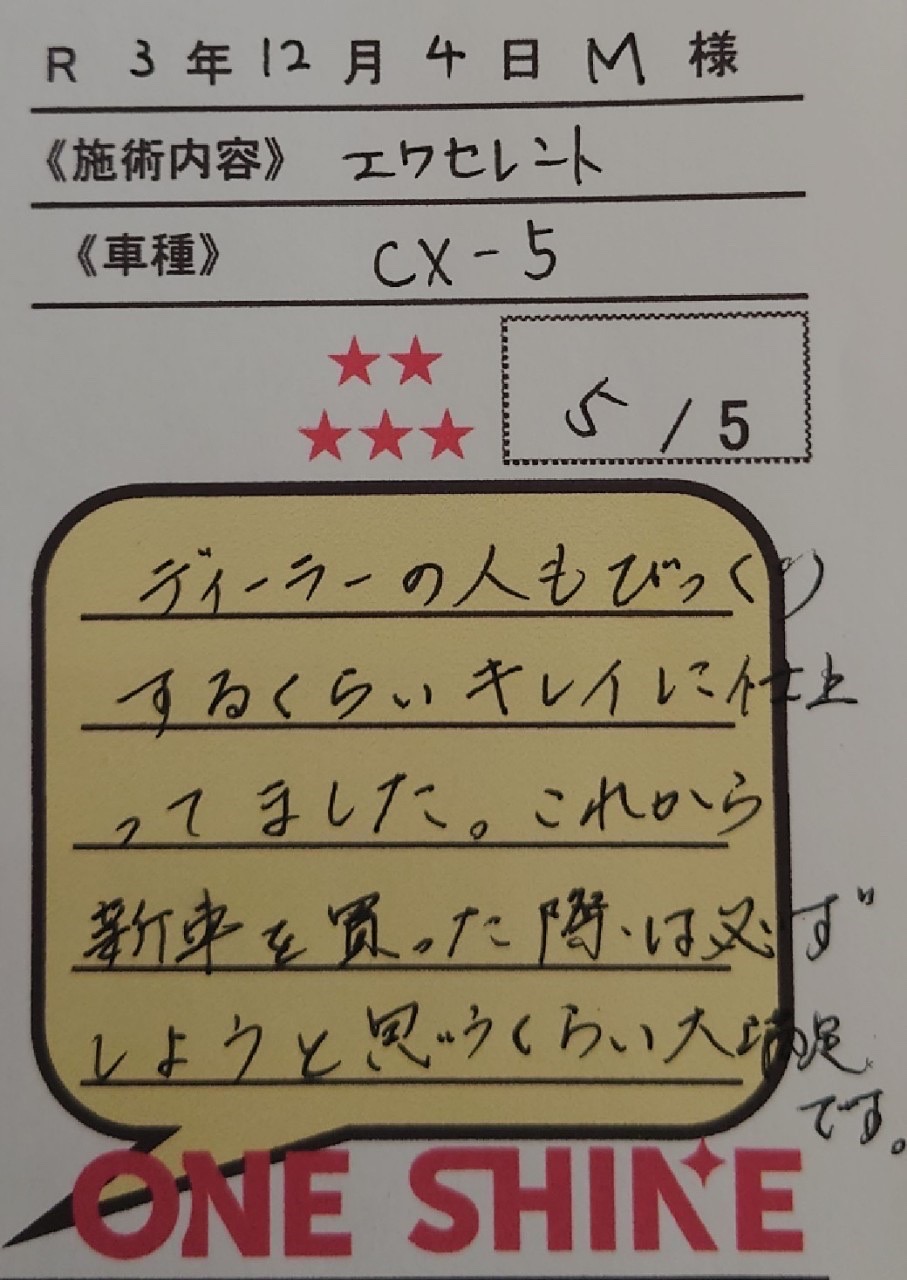 R 3年12月4日 M 様
《施術内容》 エクセレント
《車種》 CX-5
5/5
ディーラーの人もびっくり
するくらいキレイに仕上
ってました。これから
新車を買った際は必ず
しようと思うくらい大満足
です。
ONE SHINE